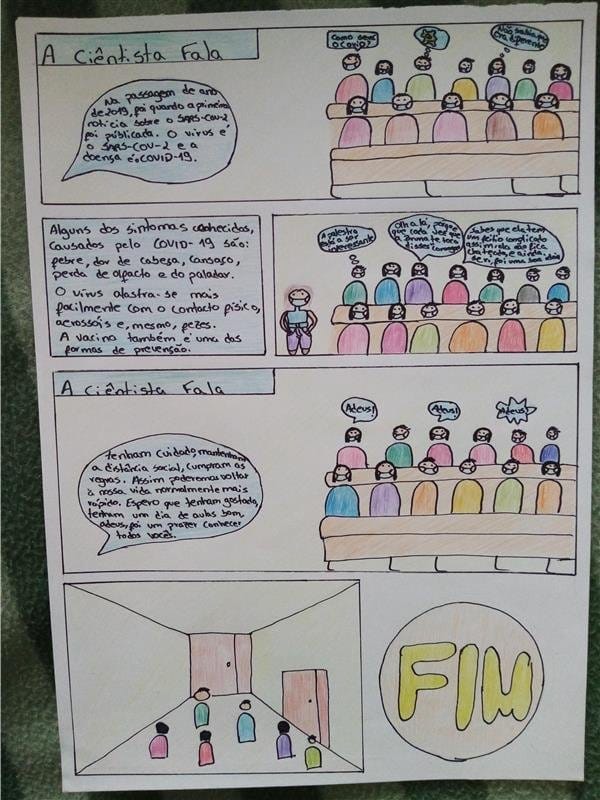 A Ciêntista Fala
Na passagem de ano
de 2019, foi quando a primeira
notícia sobre o SARS-COV-2
foi públicada. O vírus é
o SARS-COV-2 e a
doença é o COVID-19.
Como
o COVID?
Não sabia que
era diferente
Alguns dos sintomas conhecidos,
causados pelo COVID-19 são:
febre, dor de cabeça, cansaço,
perda de olfacto e do paladar.
O vírus alastra-se mais
facilmente com o contacto físico,
aerossóis e, mesmo, fezes.
A vacina também é uma das
formas de prevenção.
A palestra
está a ser
interessante
Olha lá, porque
que cada vez que
a
disser
Sabes que ela tem
um feitio complicado
assim ela não fica
chateada, e ainda
foi uma boa
A Ciêntista Fala
tenham cuidado, mantenham
a distância social, cumpram as
regras. Assim poderemos voltar
à nossa vida normalmente mais
rápido. Espero que tenham gostado,
tenham um dia de aulas bom,
adeus, foi um prazer conhecer
todos vocês.
Adeus!
Adeus!
Adeus!
FIM